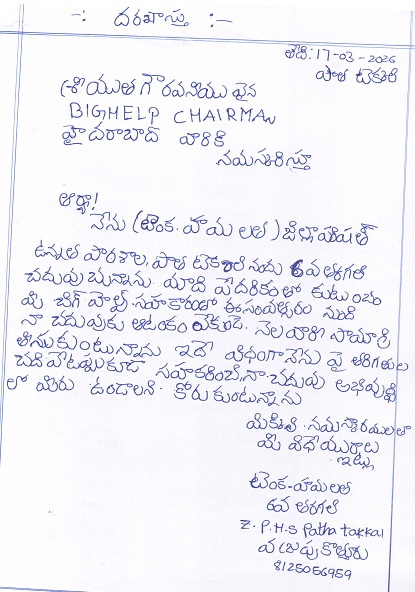 -: దరఖాస్తు :-
తేది: 17-03-2026
పాత టెక్కలి
శ్రీయుత గౌరవనీయులైన
BIGHELP CHAIRMAN
హైదరాబాద్ వారికి
నమస్కరిస్తూ
ఆర్యా!
నేను (టెంక. హేమ లత) జిల్లా పరిషత్
ఉన్నత పాఠశాల, పాత టెక్కలి నందు 6వ తరగతి
చదువుచున్నాను. మాది పేదరికంతో కుటుంబం
మీ బిగ్ హెల్ప్ సహకారంతో ఈ సంవత్సరం నుండి
నా చదువుకు ఆటంకం లేకుండా, నెలవారీ సామాగ్రి
తీసుకుంటున్నాను ఇదే విధంగా నేను పై తరగతుల
చదివేటప్పుడుకూడ సహకరించి, నా చదువు అభివృద్ధి
లో మీరు ఉండాలని. కోరుకుంటున్నాను
నమస్కారములతో
మీ విధేయురాలు
ఇట్లు
టెంక-హేమలత
6వ తరగతి
Z.P.H.S Patha takkali
వజ్రపుకొత్తూరు
8125056959